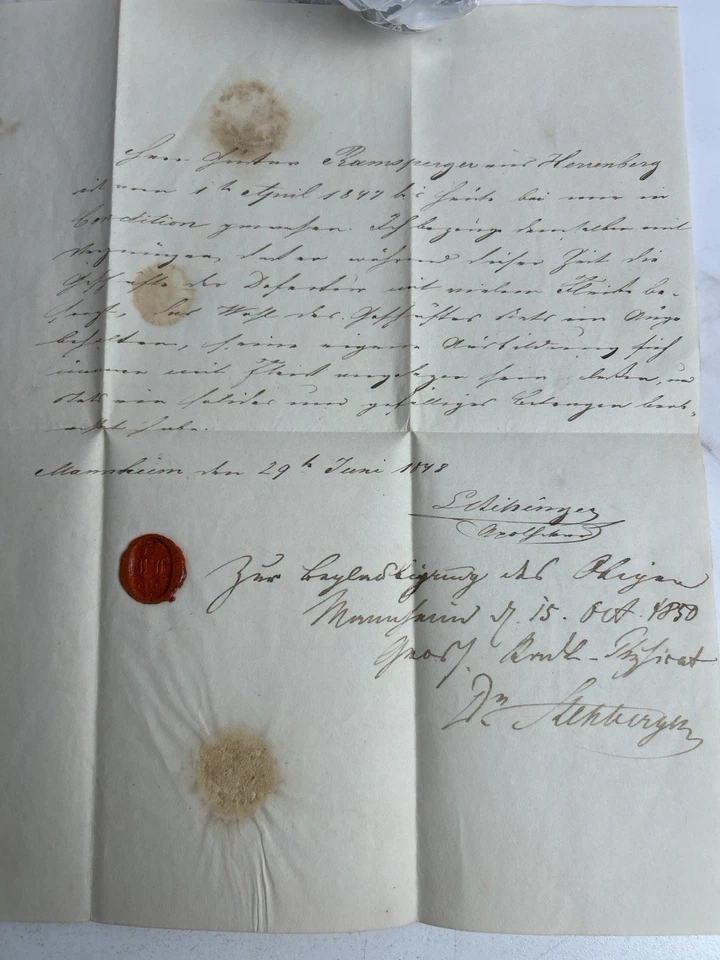 Herr Günter Ramsperger aus Herrenberg
ist vom 1ten April 1847 bis heute bei mir in
Condition gewesen. Ich bezeuge demselben mit
Vergnügen, daß er während dieser Zeit die
Geschäfte des Defectars mit vielem Fleiße be-
sorgt, das Wohl des Geschäftes stets im Auge
behalten, seine eigene Ausbildung sich
immer mit Fleiß angelegen sein lassen, und
stets ein solides und gefälliges Betragen beob-
achtet habe.
Mannheim den 29ten Juni 1848
Apotheker
Zur Beglaubigung des Obigen
Mannheim d. 15. Oct. 1850
Großh. Bad. Physicat
Dr Stehberger